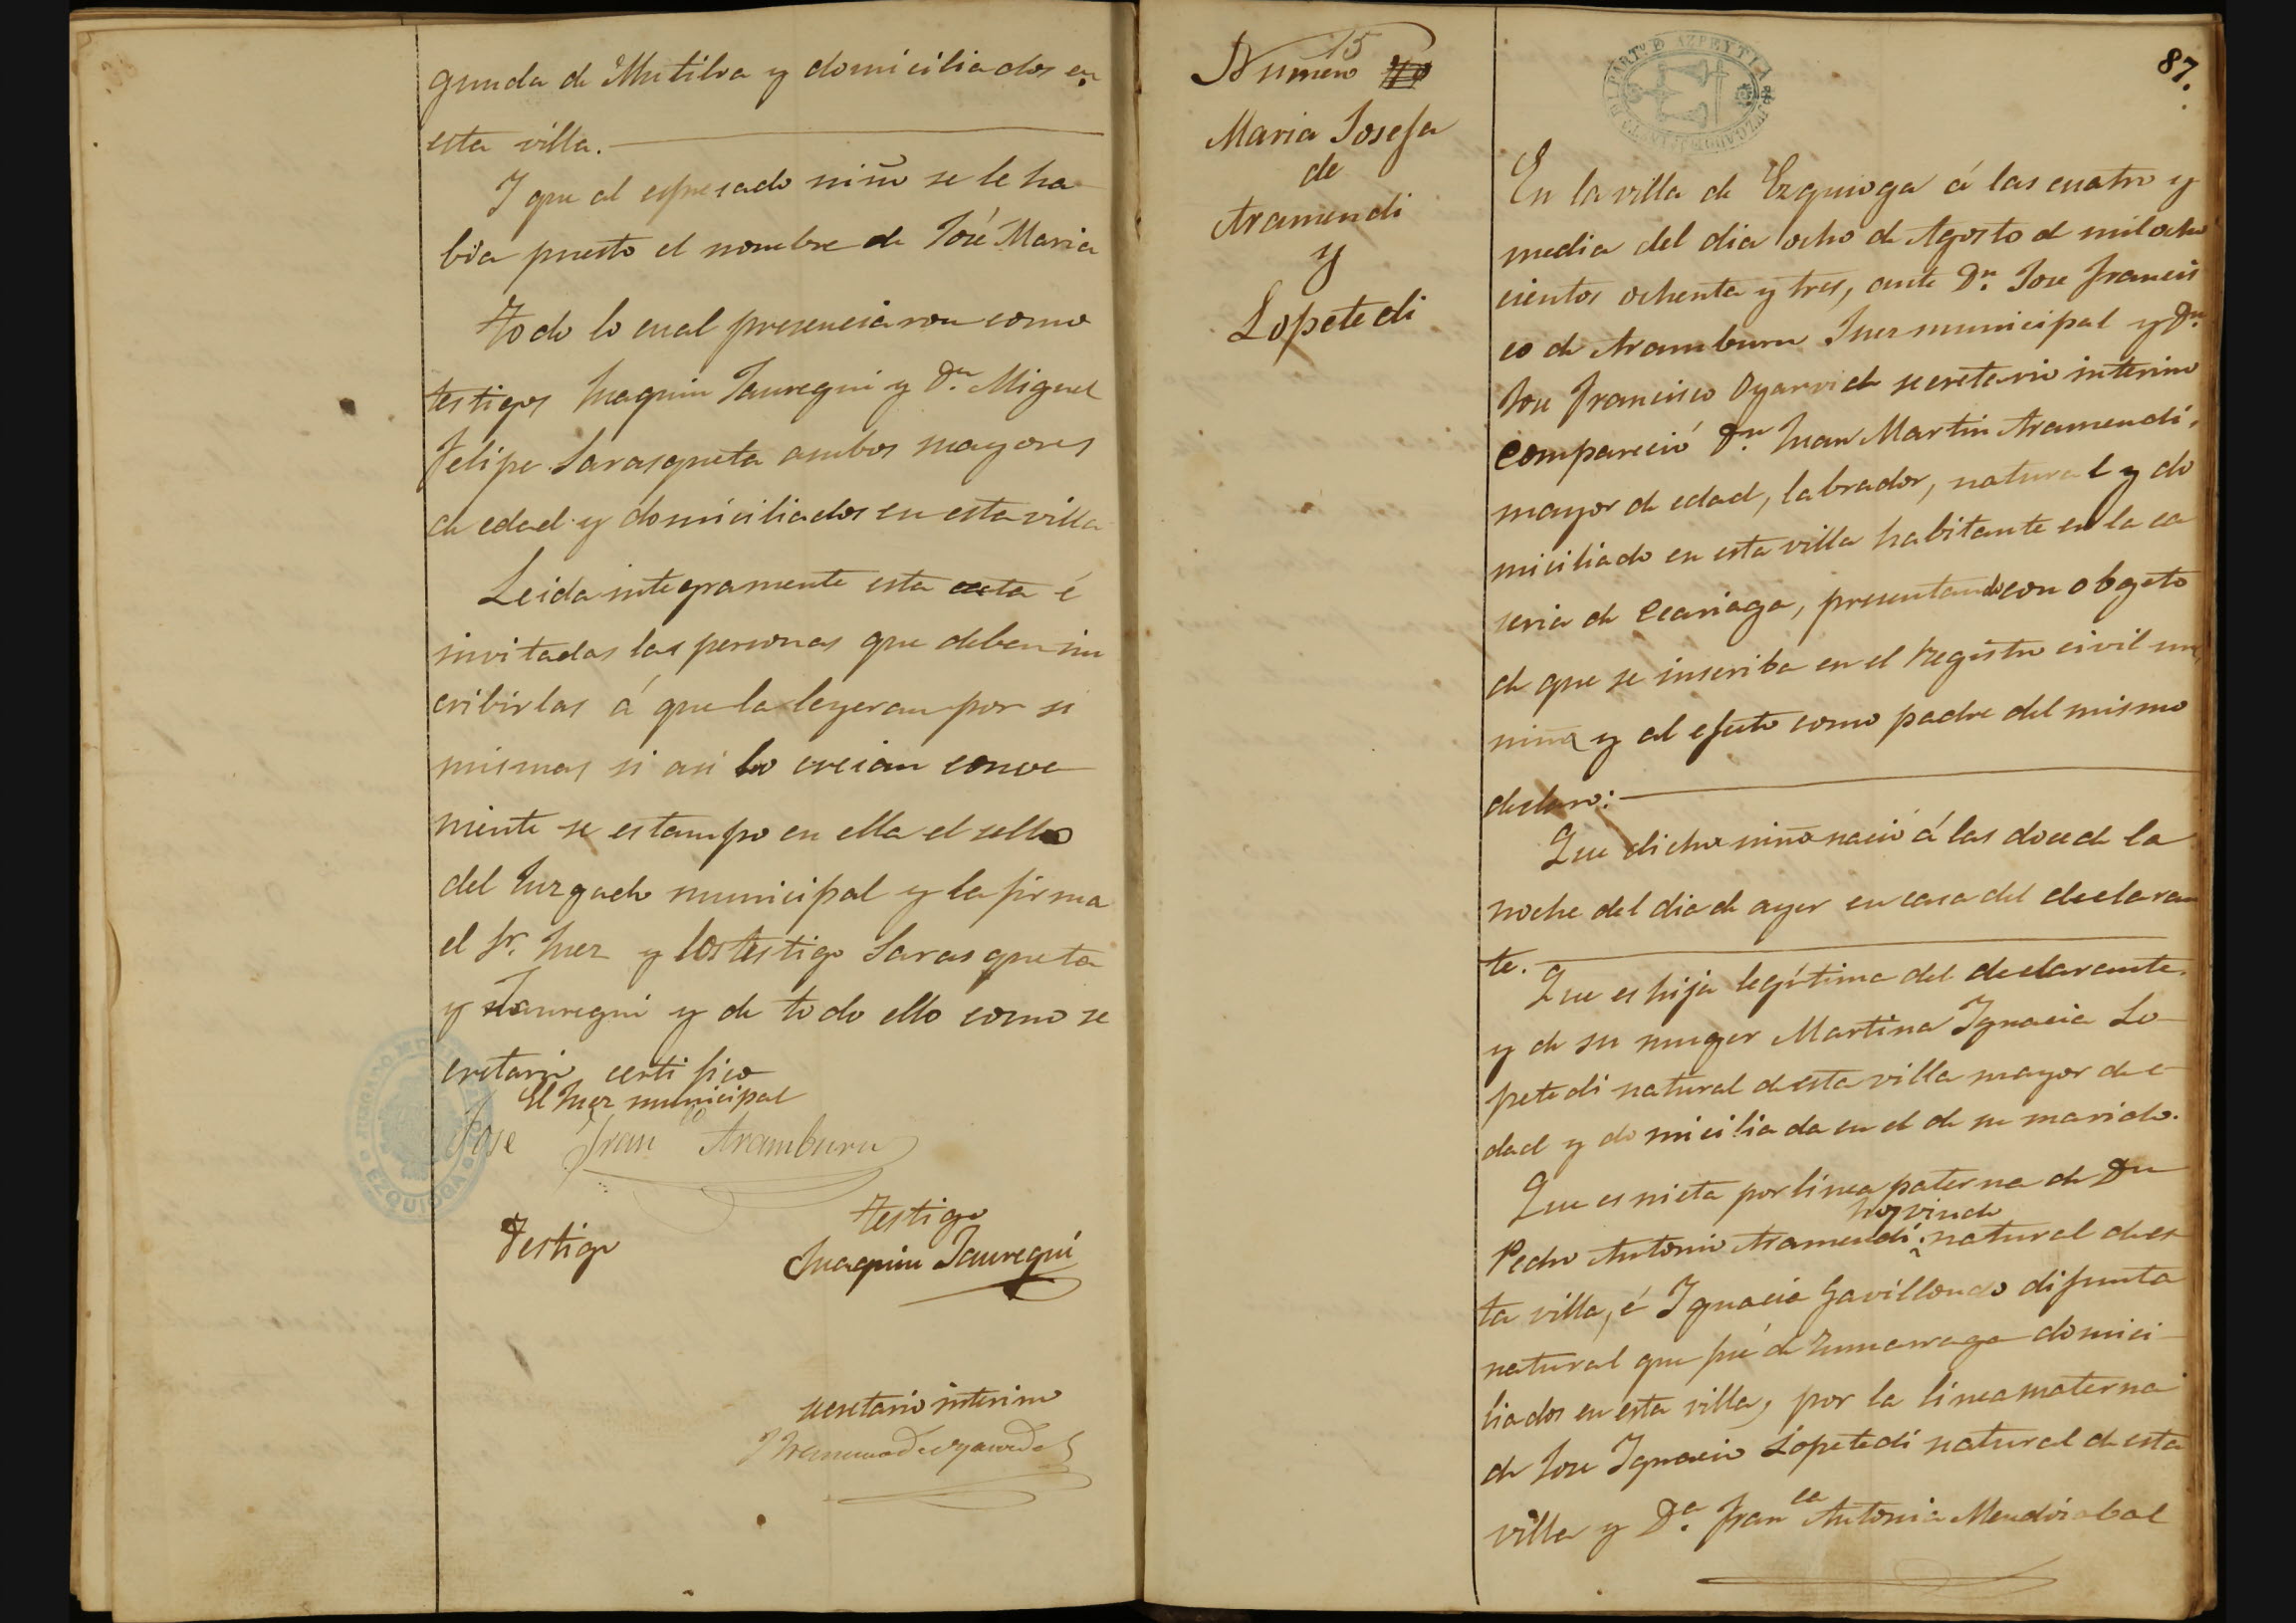 gunda de Mutiloa y domiciliados en
esta villa.
Y que al espresado niño se le ha
bia puesto el nombre de José Maria
Todo lo cual presenciaron como
testigos Juaquin Jauregui y Dn Miguel
Felipe Sarasqueta ambos mayores
de edad y domiciliados en esta villa
Leida integramente esta acta é
invitadas las personas que deben sus
cribirlas á que la leyeran por si
mismas si asi lo creian conve
niente se estampo en ella el sello
del Juzgado municipal y la firma
el Sr. Juez y los testigo Sarasqueta
y Jauregui y de todo ello como se
cretario certifico
El Juez municipal
Jose Franco Aramburu
JUZGADO MUNICIPAL
EZQUIOGA
Testigo
Testigo
Juaquin Jauregui
secretario interino
Numero 15
Maria Josefa
de
Aramendi
y
Lopetedi
PARTº D AZPEYTIA
87.
En la villa de Ezquioga á las cuatro y
media del dia ocho de Agosto de mil ocho
cientos ochenta y tres, ante Dn. Jose Francis
co de Aramburu Juez municipal y Dn.
Jose Francisco Oyarvide secretario interino
compareció Dn. Juan Martin Aramendi,
mayor de edad, labrador, natural y do
miciliado en esta villa habitante en la ca
seria de Ecariaga, presentando con obgeto
de que se inscriba en el Registro civil una
niña y al efecto como padre del mismo
declaro:
Que dicha niña nació á las doce de la
noche del dia de ayer en casa del declaran
te.
Que es hija legítima del declarante
y de su muger Martina Ygnacia Lo-
petedi natural de esta villa mayor de e-
dad y domiciliada en el de su marido.
Que es nieta por línea paterna de Dn
hoy viudo
Pedro Antonio Aramendi, natural de es
ta villa, é Ygnacia Gavillondo difunta
natural que fué de Zumarraga domici-
liados en esta villa, por la linea materna
de Jose Ygnacio Lopetedi natural de esta
villa y Da. Franca Antonia Mendizabal